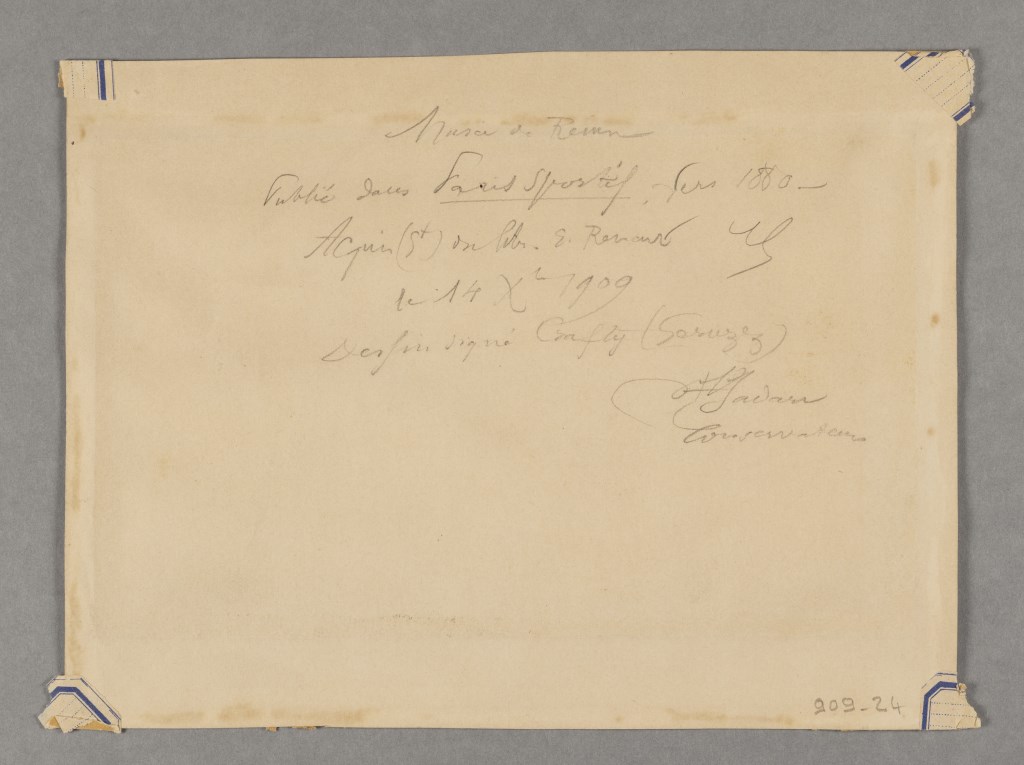 Musée de Reims
Publié dans Paris Sportif, vers 1880 —
Acquis (5f) du libr. E. Renard
le 14 Xbre 1909
Dessin signé Crafty (Geruzez)
Jadart
Conservateur
909-24